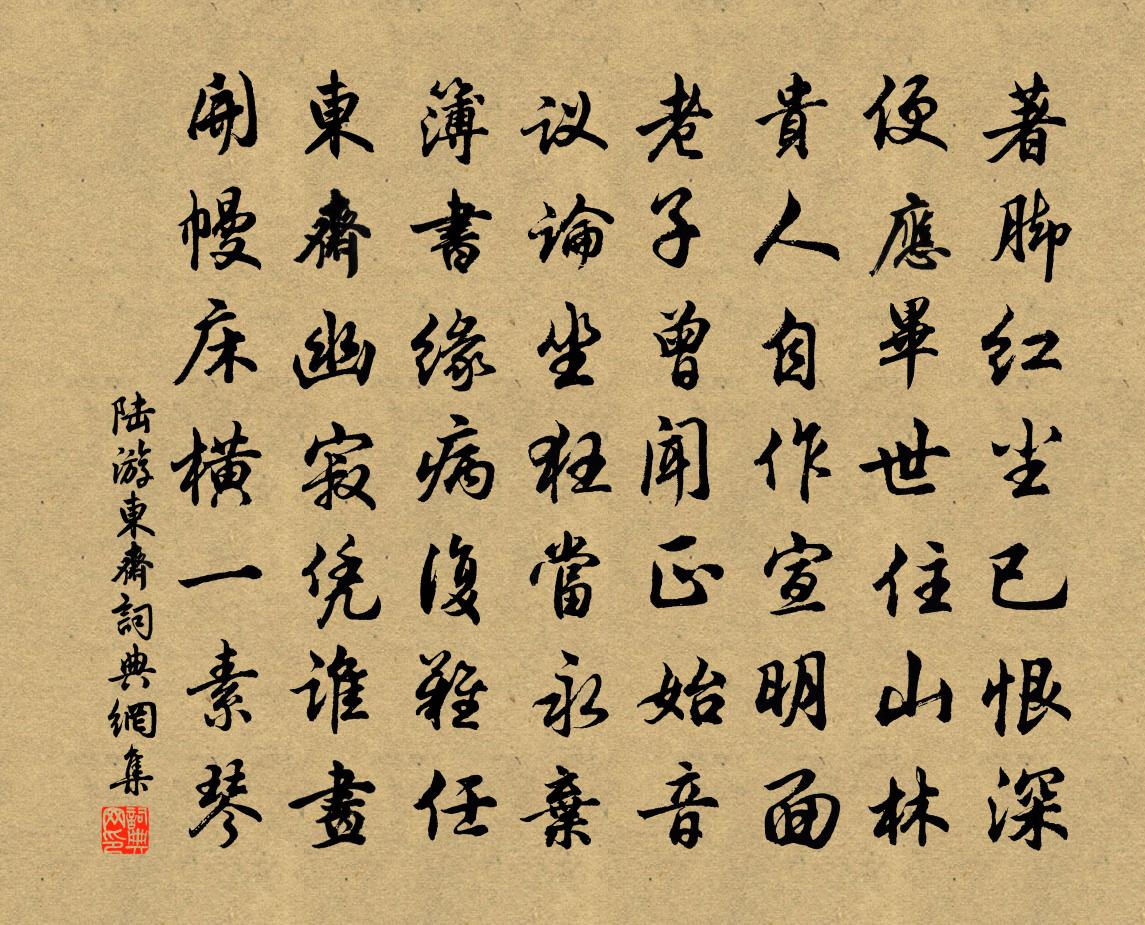 著脚红尘已恨深
便應畢世住山林
貴人自作宣明面
老子曾闻正始音
议論坐狂當永棄
簿書緣病復難任
東齋幽寂凭誰畫
開幔床橫一素琴
陆游東齋詞典網集
詞典网印